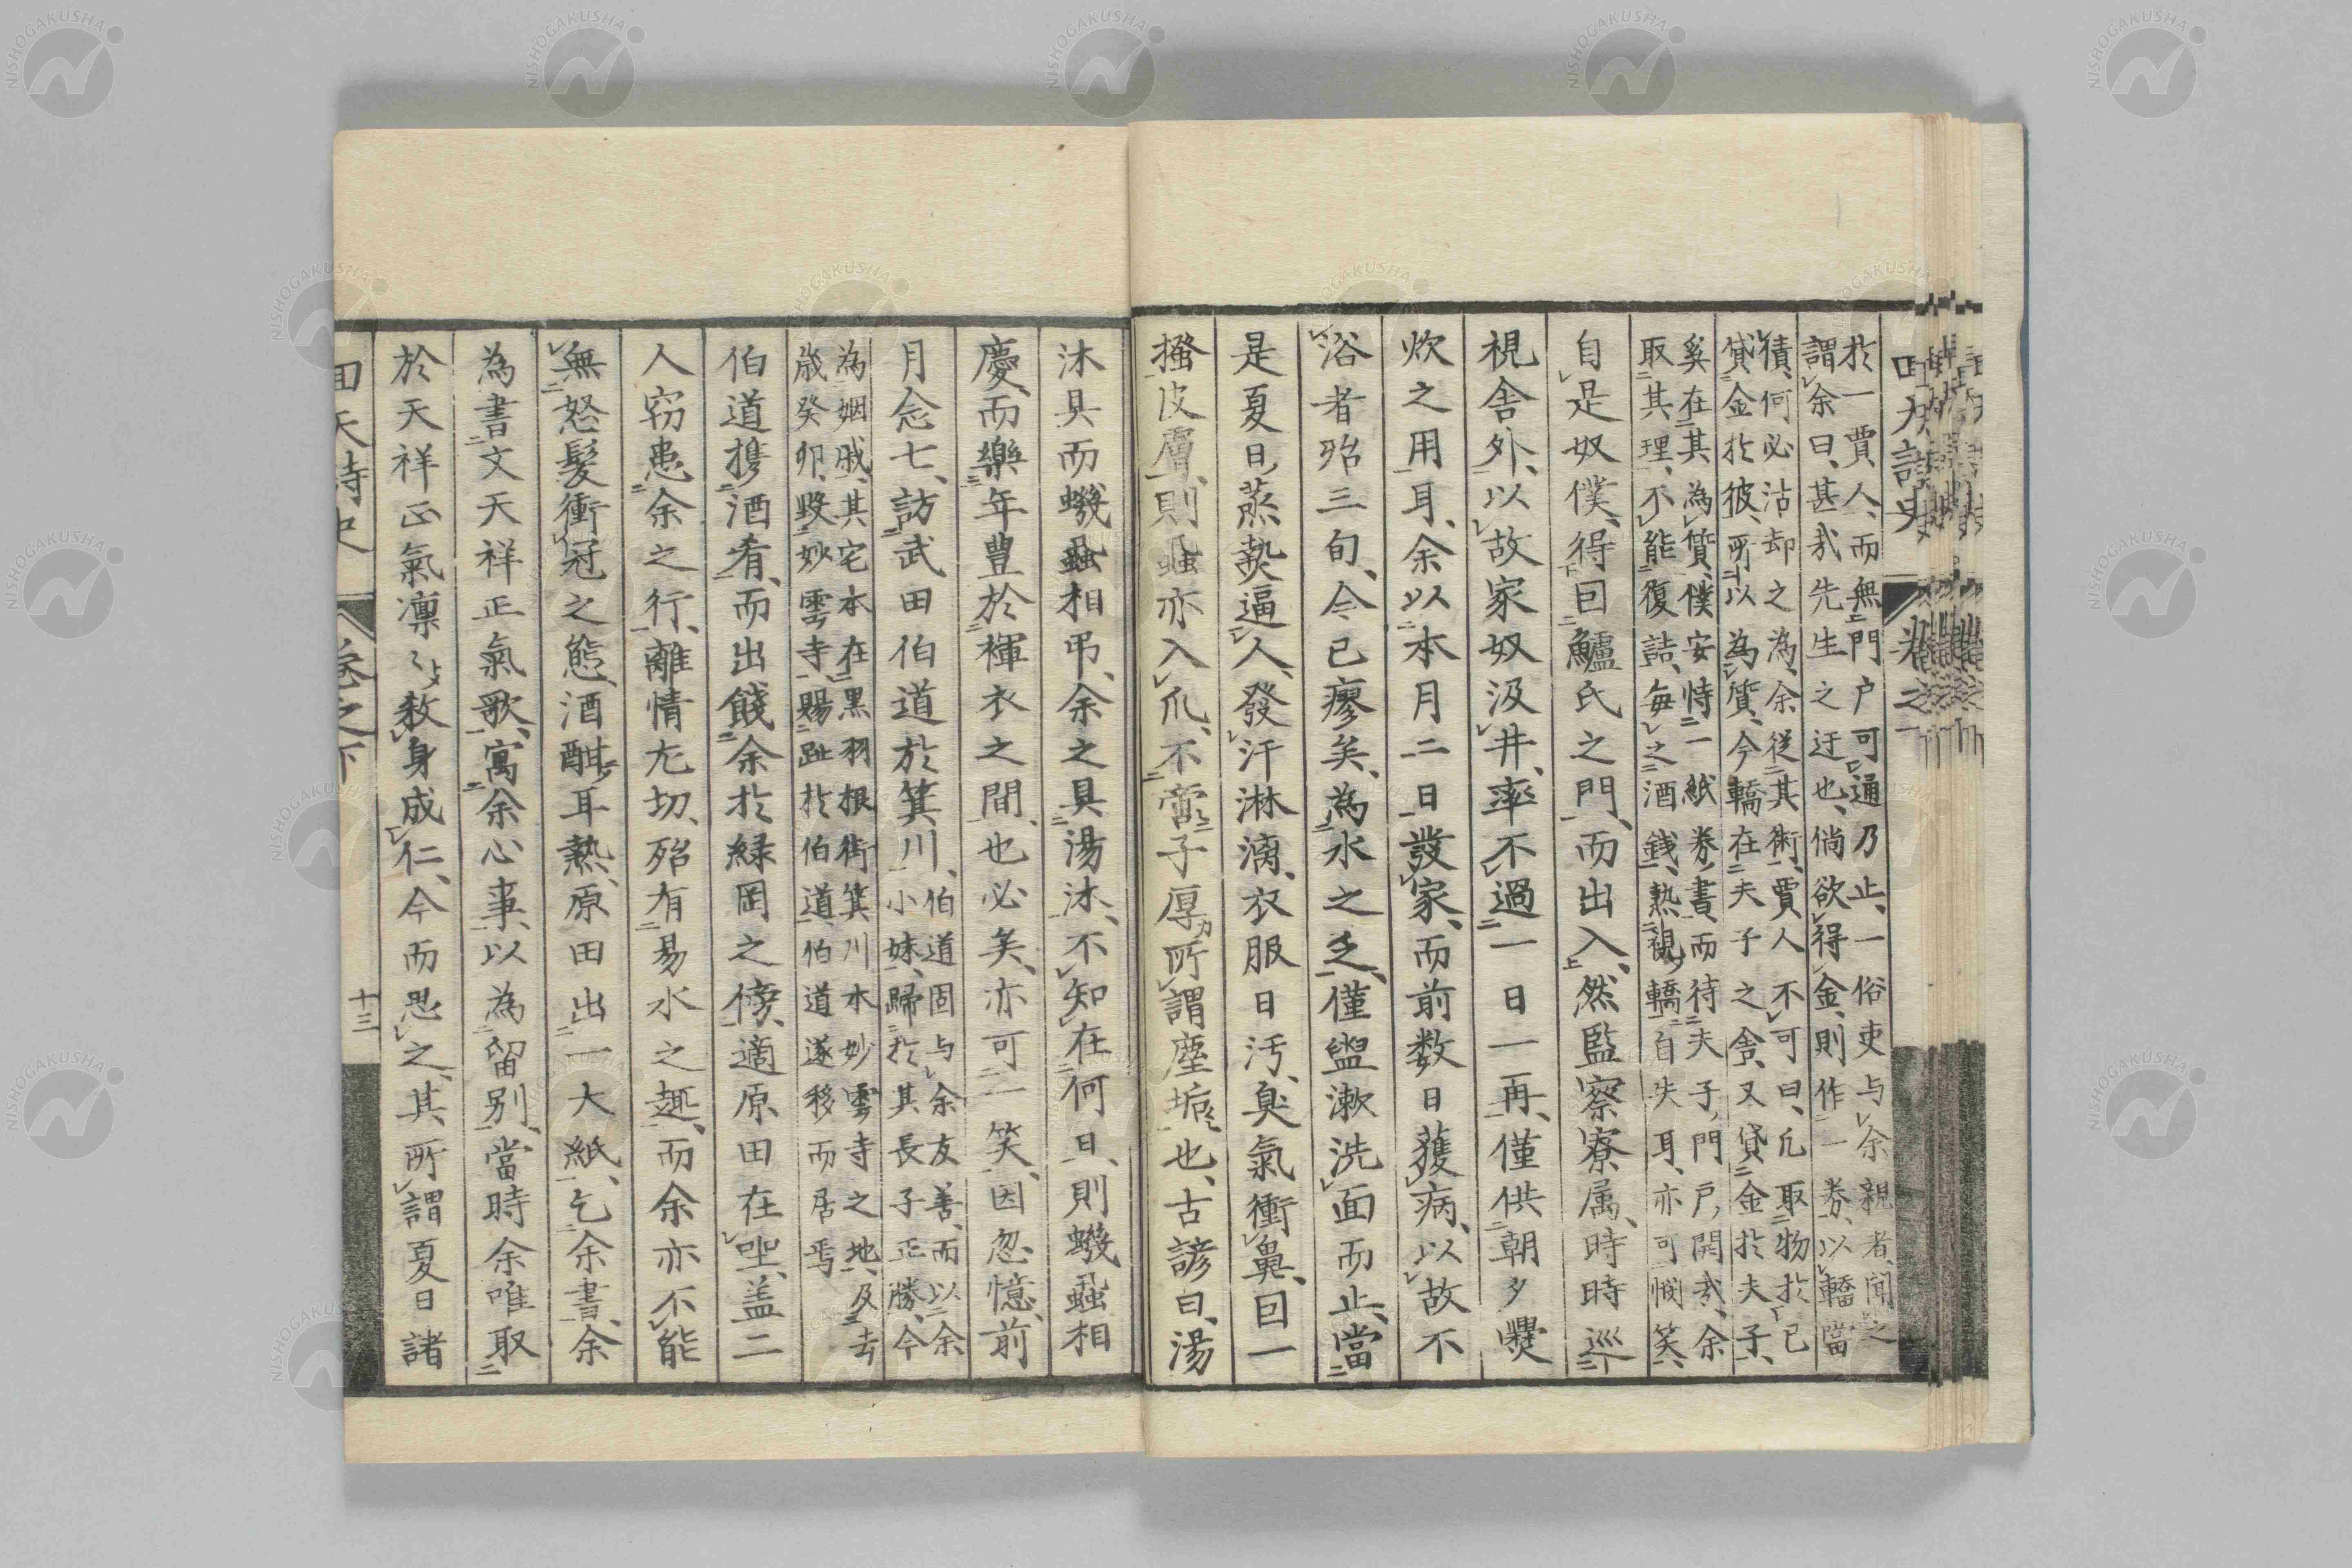 於一賈人、而無門戶可通乃止、一俗吏与余親者、聞之
謂余曰、甚哉先生之迂也、倘欲得金、則作一券、以轎當
債、何必沽却之為、余從其術、賈人不可曰、凡取物於已
貸金於彼、所以為質、今轎在夫子之舍、又貸金於夫子、
奚在其為質、僕安恃一紙券書、而待夫子、門戶開哉、余
取其理、不能復詰、每之酒錢、熟視轎自失耳、亦可憫笑、
自是奴僕、得回鱸氏之門、而出入、然監察寮属、時時巡
視舍外、以故家奴汲井、率不過一日一再、僅供朝夕爨
炊之用耳、余以本月二日發家、而前数日獲病、以故不
浴者殆三旬、今已瘳矣、為水之乏、僅盥漱洗面而止、當
是夏日、蒸熱逼人、發汗淋漓、衣服日汚、臭氣衝鼻、回一
搔皮膚、則蝨亦入爪、不啻子厚所謂塵垢也、古諺曰、湯
沐具而蟣蝨相弔、余之具湯沐、不知在何日、則蟣蝨相
慶、而樂年豊於褌衣之間、也必矣、亦可一笑、因忽憶、前
月念七、訪武田伯道於箕川、
伯道固与余友善、而以余
小妹、歸於其長子正勝、今
為姻戚、其宅本在黑羽根街箕川本妙雲寺之地、及去
歲癸卯、毀妙雲寺、賜趾於伯道、伯道遂移而居焉
伯道携酒肴、而出餞余於緑岡之傍、適原田在坐、盖二
人窃患余之行、離情尤切、殆有易水之趣、而余亦不能
無怒髮衝冠之態、酒酣耳熱、原田出一大紙、乞余書、余
為書文天祥正氣歌、寓余心事、以為留別、當時余唯取
於天祥正氣凛〻殺身成仁、今而思之、其所謂夏日諸
回天詩史
卷之下
十三